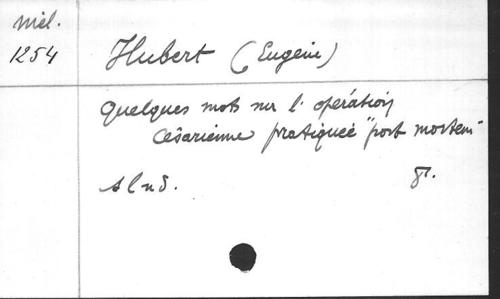 Mél.
1254
Hubert (Eugène)
Quelques mots sur l'opération
Césarienne pratiquée "post mortem"
s l n d.
8°.